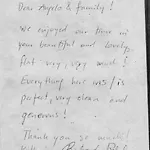 Dear Angela & family!
We enjoyed our time in
your beautiful and lovely
flat very, very much!
Everything here was / is
perfect, very clean and
generous!
Thank you so much!